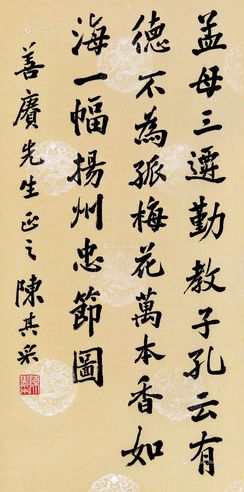 孟母三遷勤教子孔云有
德不為孤梅花萬本香如
海一幅揚州忠節圖
善賡先生正之 陳其采